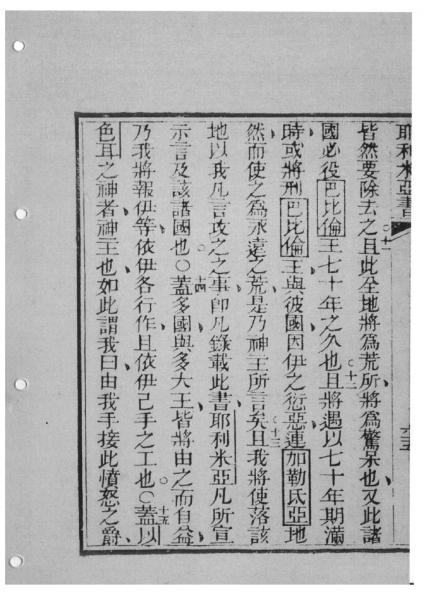 耶利米亞書
皆然要除去之○十一且此全地將為荒所將為驚呆也又此諸
國必役巴比倫王七十年之久也○十二且將遇以七十年期滿
時或將刑巴比倫王與彼國因伊之愆惡連加勒氐亞地
然而使之為永遠之荒是乃神王所言矣○十三且我將使落該
地以我凡言攻之之事卽凡錄載此書耶利米亞凡所宣
示言及該諸國也○十四蓋多國與多大王皆將由之而自益
乃我將報伊等依伊各行作且依伊己手之工也○十五蓋以
色耳之神者神王也如此謂我曰由我手接此憤怒之爵